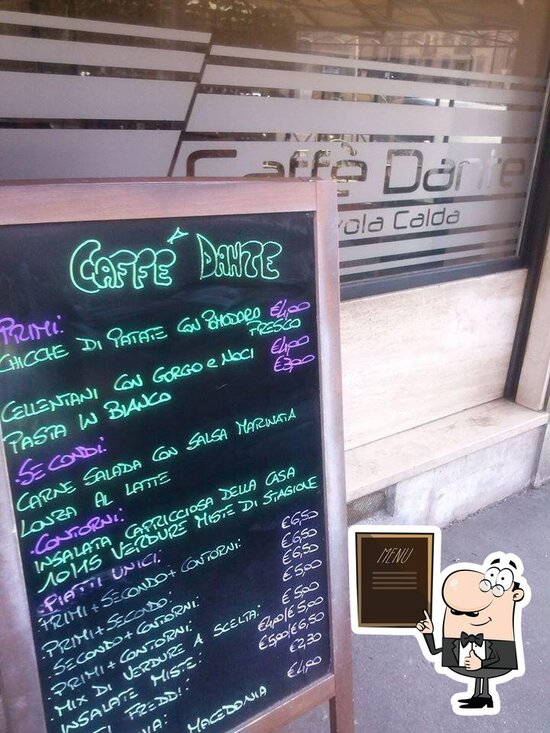 Caffè Dante
vola Calda
CAFFÈ DANTE
PRIMI:
CHICCHE DI PATATE CON POMODORO FRESCO €4,00
CELLENTANI CON GORGO E NOCI €4,00
PASTA IN BIANCO €3,00
SECONDI:
CARNE SALADA CON SALSA MARINATA
LONZA AL LATTE
CONTORNI:
INSALATA CAPRICCIOSA DELLA CASA
10/15 VERDURE MISTE DI STAGIONE
PIATTI UNICI:
PRIMI + SECONDO + CONTORNI: €6,50
PRIMI + SECONDO: €6,50
SECONDO + CONTORNI: €6,50
PRIMI + CONTORNI: €5,00
MIX DI VERDURE A SCELTA: €5,00
INSALATE MISTE: €4,00/€5,00
FREDDI: €5,00/€6,50
€2,30
MACEDONIA €4,00
MENU